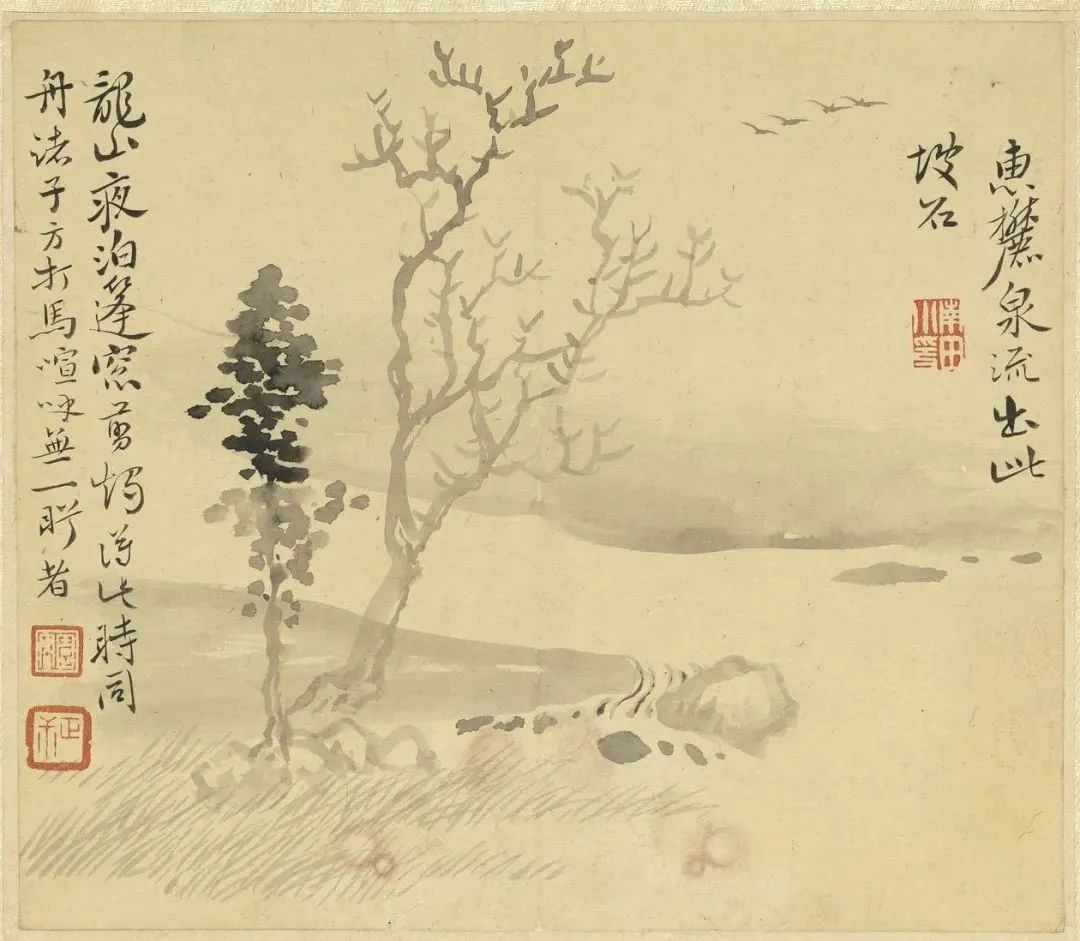 惠麓泉流出此
坡石
龍山夜泊篷窓剪燭得此時同
舟諸子方打馬喧呼無一聍者